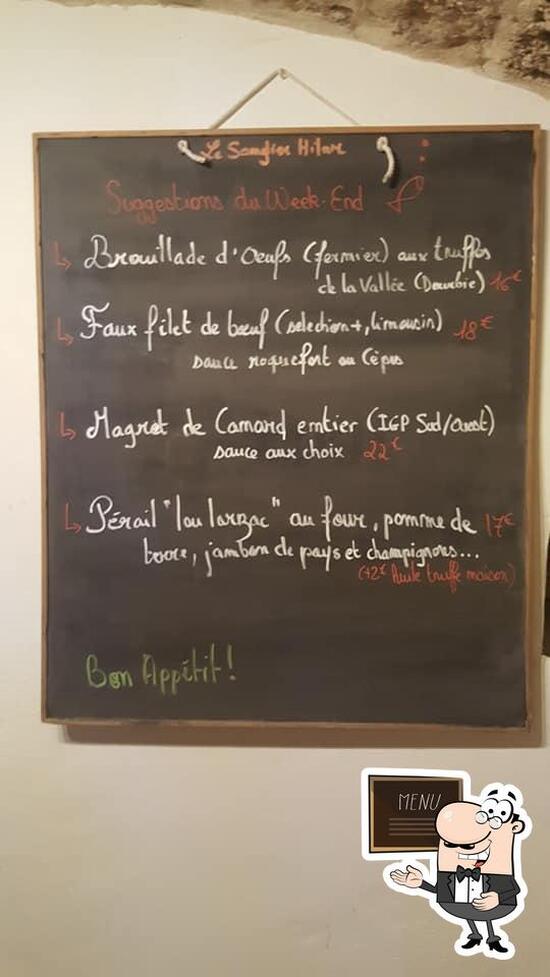 Le Sanglier Hilare
Suggestions du Week-End
↳ Brouillade d'Oeufs (fermier) aux truffes
de la Vallée (Dourbie) 16€
↳ Faux filet de bœuf (selection+, limousin) 18€
sauce roquefort ou Cèpes
↳ Magret de Canard entier (IGP Sud/Ouest)
sauce aux choix 22€
↳ Pérail "lou larzac" au four, pomme de 17€
terre, jambon de pays et champignons...
(+2€ Huile truffe maison)
Bon Appétit!
MENU